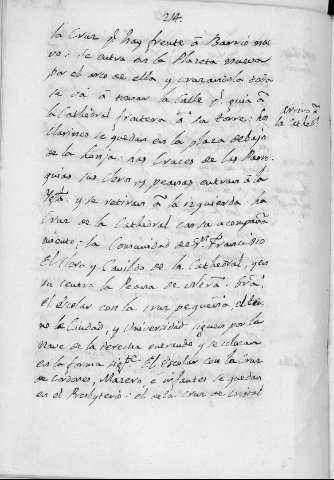 214.
la Cruz q.e hay frente â Barrio nue
vo: se entra en la Plazeta nueva
por el arco de ella y cruzandola toda
se vâ â tomar la Calle q.e guia â
la Cathedral frontera â la torre; los
Clarines se quedan en la plaza debajo
de la lonja: las Cruces de las Parro
quias sus Clero, y peanas entran â la
Ygl.a y se retiran â la izquierda. La
Cruz de la Cathedral con su acompaña
miento; la Comunidad de S.n Francisco
El Clero y Cavildo de la Cathedral, y en
su centro la Peana de
El escolar con la cruz pequeña, el
no la Ciudad, y Universidad siguen por la
Nave de la derecha entrando y se colocan
en la forma sig.te El Escolar con la Cruz
de Cordones, Mazero e infantes se quedan
en el Presbyterio: el de la Cruz de Cristal
arrivo â
la Cathed.l